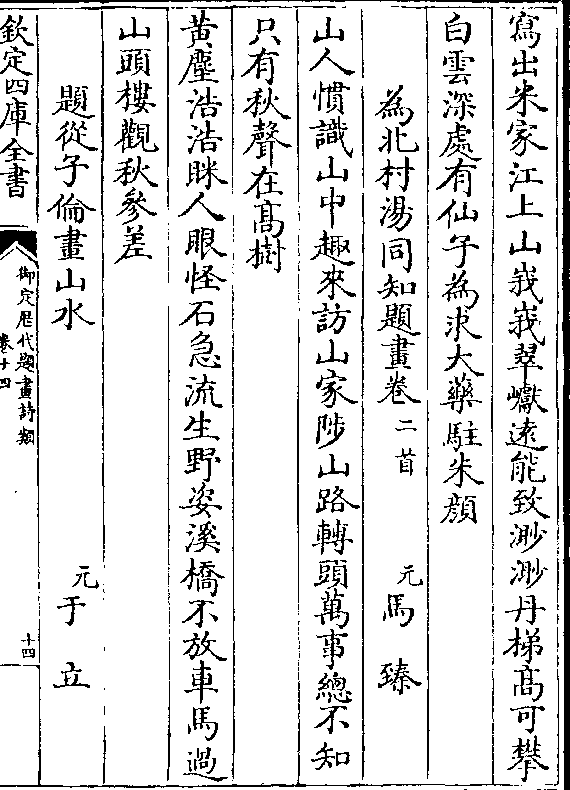 寫出米家江上山峩峩翠巘遠能致渺渺丹梯髙可攀
白雲深處有仙子為求大藥駐朱顔
為北村湯同知題畫卷二首 元馬臻
山人慣識山中趣來訪山家陟山路轉頭萬事總不知
只有秋聲在髙樹
黄塵浩浩眯人眼怪石急流生野姿溪橋不放車馬過
山頭樓觀秋參差
題從子倫畫山水 元于立
欽定四庫全書
御定歷代題畫詩類
卷十四
十四